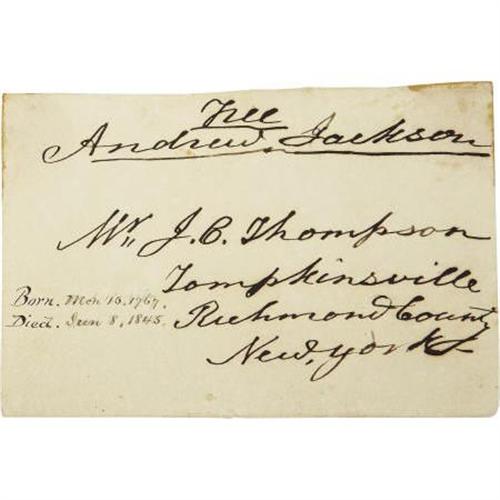 Free
Andrew. Jackson
Mr. J. C. Thompson
Tompkinsville
Born. Mch 15. 1767.
Died. Jun 8, 1845.
Richmond County
New, York